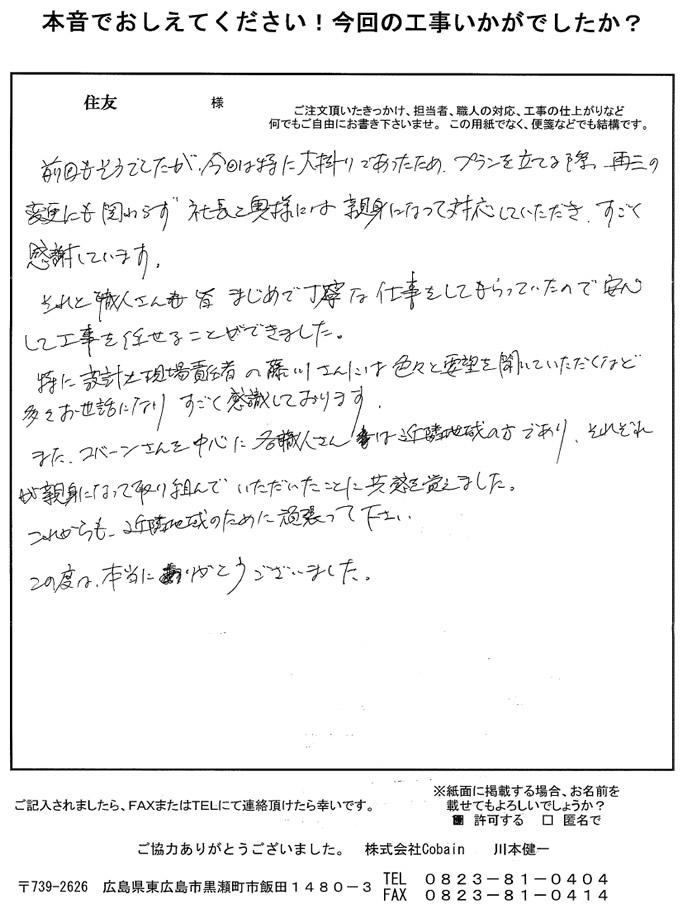 本音でおしえてください！今回の工事いかがでしたか？
住友 様
ご注文頂いたきっかけ、担当者、職人の対応、工事の仕上がりなど
何でもご自由にお書き下さいませ。この用紙でなく、便箋などでも結構です。
前回もそうでしたが、今回は特に大掛りであったため、プランを立てる際、再三の
変更にも関わらず 社長と奥様には 親身になって対応していただき、すごく
感謝しています。
それと職人さんも皆 まじめで丁寧な仕事をしてもらっていたので安心
して工事を任せることができました。
特に設計と現場責任者の藤川さんには色々と要望を聞いていただくなど
多々お世話になり すごく感謝しております。
また、コバーンさんを中心に各職人さんは近隣地域の方であり、それぞれ
が親身になって取り組んでいただいたことに共感を覚えました。
これからも、近隣地域のために頑張って下さい
この度は、本当にありがとうございました。
ご記入されましたら、FAXまたはTELにて連絡頂けたら幸いです。
※紙面に掲載する場合、お名前を
載せてもよろしいでしょうか？
許可する □ 匿名で
ご協力ありがとうございました。 株式会社Cobain 川本健一
〒739-2626 広島県東広島市黒瀬町市飯田１４８０－３
TEL ０８２３－８１－０４０４
FAX ０８２３－８１－０４１４